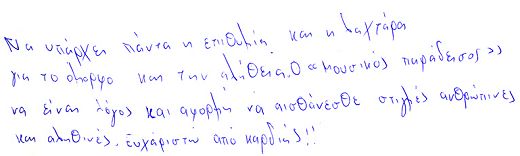 Να υπάρχει πάντα η επιθυμία και η λαχτάρα
για το όμορφο και την αλήθεια. Ο «μουσικός παράδεισος»
να είναι λόγος και αφορμή να αισθάνεσθε στιγμές ανθρώπινες
και αληθινές. Ευχαριστώ από καρδιάς!!